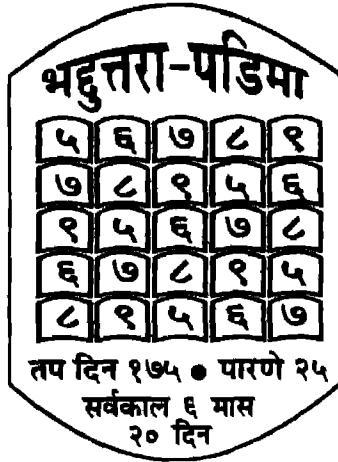 भद्दुत्तरा-पडिमा
५ ६ ७ ८ ९
७ ८ ९ ५ ६
९ ५ ६ ७ ८
६ ७ ८ ९ ५
८ ९ ५ ६ ७
तप दिन १७५ ● पारणे २५
सर्वकाल ६ मास
२० दिन